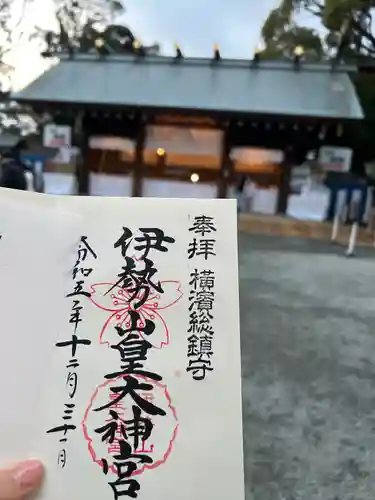 奉拝 横濱総鎮守
伊勢山皇大神宮
令和五年十二月三十一日